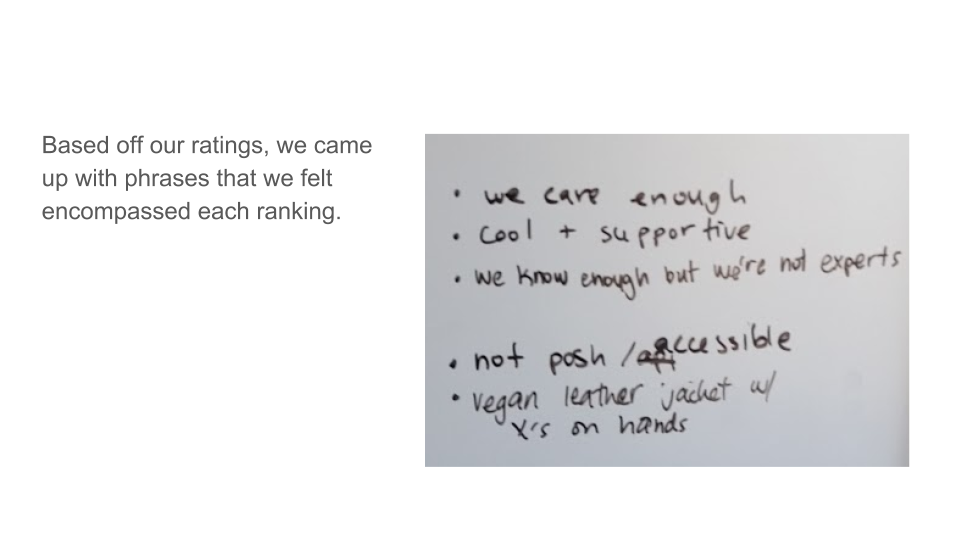 Based off our ratings, we came
up with phrases that we felt
encompassed each ranking.
• we care enough
• cool + supportive
• we know enough but we're not experts
• not posh / accessible
• vegan leather jacket w/
X's on hands